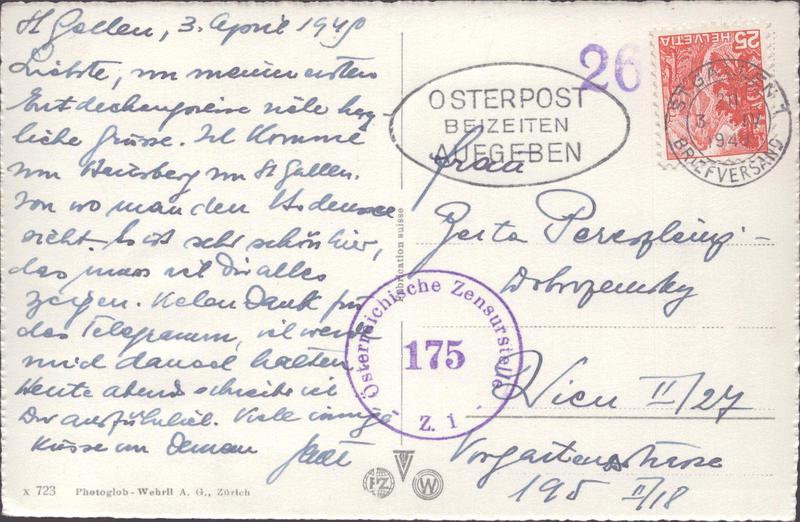 St Gallen, 3. April 194
Liebste, von meiner ersten
Entdeckungsreise viele herz-
liche Grüsse. Ich komme
vom St Gallen.
Von wo man den Bodensee
sieht. Es ist sehr schön hier,
das muss ich Dir alles
zeigen. Vielen Dank für
das Telegramm, ich werde
mich danach halten
Heute abend schreibe ich
Dir ausführlich. Viele innige
Küsse von Deinem
x 723 Photoglob-Wehrli A. G., Zürich
Fabrication suisse
PZ W
26
OSTERPOST
BEIZEITEN
AUFGEBEN
25 HELVETIA
ST. GALLEN 1
3. IV
194
BRIEFVERSAND
Frau
Gerta Pereszlenyi-
Dobrzensky
Wien II/27
Vorgartenstrasse
195 II/18
Österreichische Zensurstelle
175
Z. 1